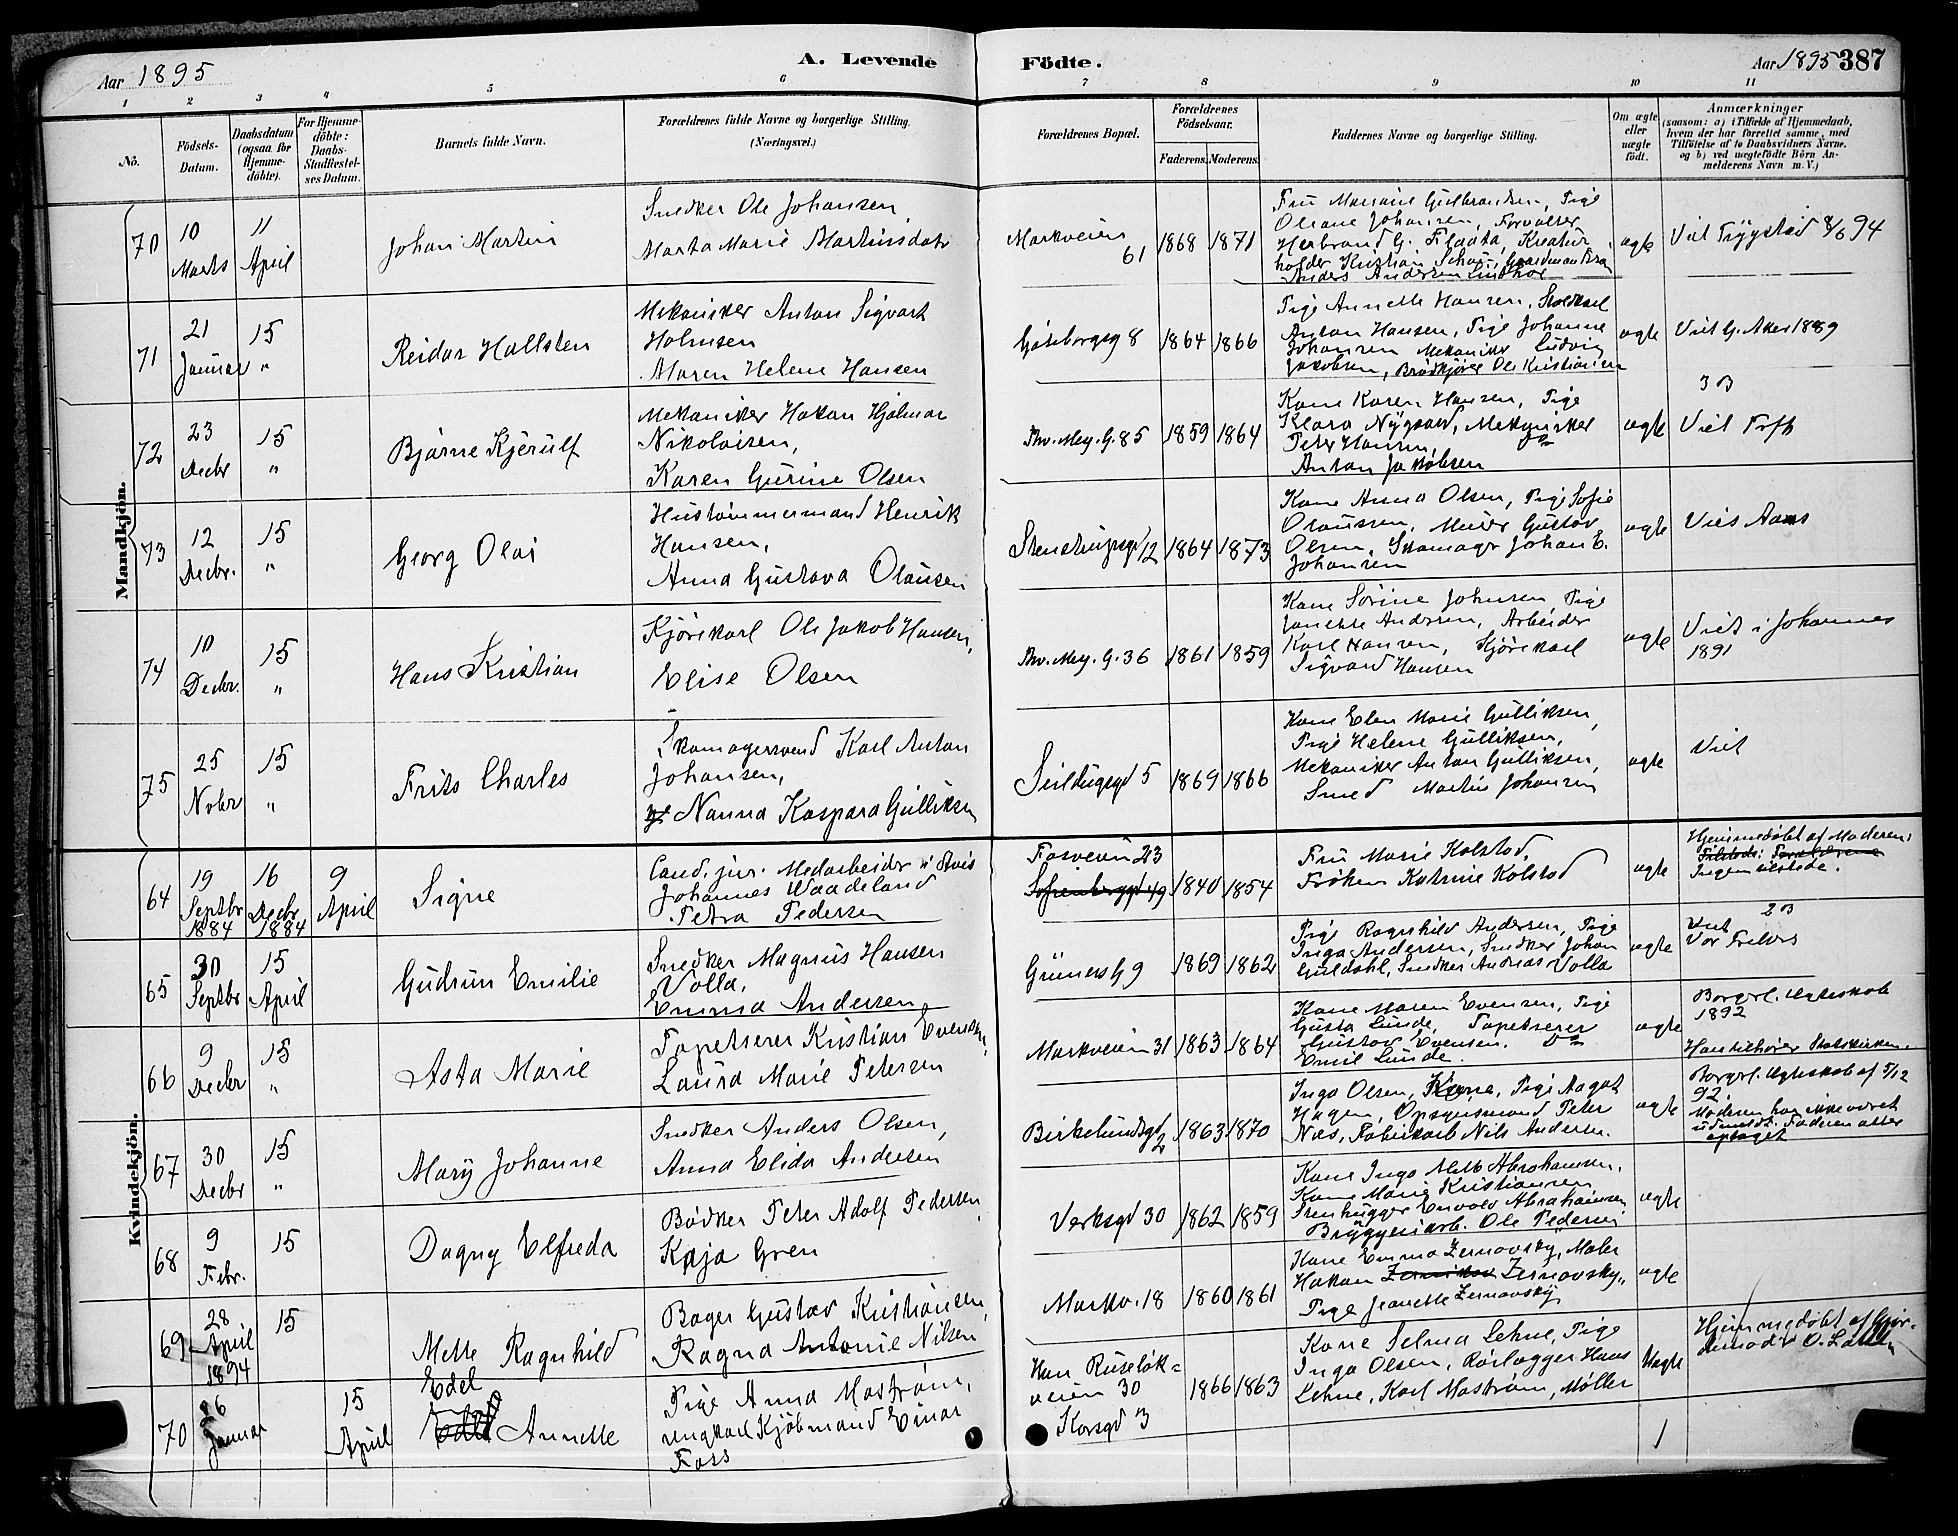 Aar 1895
A. Levende
Födte.
Aar 1895 387
1 2 3 4 5 6 7 8 9 10 11
No.
Födsels-
Datum.
Daabsdatum
(ogsaa for
Hjemme-
döbte).
For Hjemme-
döbte:
Daabs-
Stadfæstel-
ses Datum.
Barnets fulde Navn.
Forældrenes fulde Navne og borgerlige Stilling.
(Næringsvei.)
Forældrenes Bopæl.
Forældrenes
Födselsaar.
Faderens. Moderens.
Faddernes Navne og borgerlige Stilling.
Om ægte
eller
uægte
födt.
Anmærkninger
(saasom: a) i Tilfælde af Hjemmedaab,
hvem der har forrettet samme, med
Tilföielse af to Daabsvidners Navne,
og b) ved uægtefödte Börn An-
melderens Navn m. V.)
Mandkjön.
70
10
Marts
11
April
Johan Martin
Snedker Ole Johansen
Marta Marie Martinsdatr
Markveien
61
1868 1871
Fru Mariane Gulbrandsen, Pige
Oliane Johansen, Forvalter
Herbrand G. Flaata, Kreatur
holder Kristian
Anders Andersen
ægte
Viet Trygstad 8/6 94
71
21
Januar
15
"
Reidar Hallsten
Mekaniker Anton Sigvart
Holmsen
Maren Helene Hansen
Göteborgsg 8
1864 1866
Pige Annette Hansen, Stoldkarl
Anton Hansen, Pige Johanne
Johansen Mekaniker Ludvig
Jakobsen, Brødkjører Ole Kristiansen
ægte
Viet G. Aker 1889
72
23
Decbr
15
"
Bjarne Kjerulf
Mekaniker Hakon Hjalmar
Nikolaisen,
Karen Gurine Olsen
Thv. Mey. G. 85
1859 1864
Kone Karen Hansen, Pige
Klara Nygaard, Mekaniker
Peter Hansen
Anton Jakobsen
ægte
3 B
Viet Trfk
73
12
Decbr.
15
"
Georg Olai
Hustømmermand Henrik
Hansen,
Anna Gustava Olausen
Stenstrupsgd 12
1864 1873
Kone Anna Olsen, Pige Sofie
Olaussen, Murer Gustav
Olsen, Skomagr Johan E.
Johansen
ægte
Viet Aaas
74
10
Decbr.
15
"
Hans Kristian
Kjørekarl Ole Jakob Hansen,
Elise Olsen
Thv. Mey. G. 36
1861 1859
Kone Sørine Johnsen Pige
Janette Andersen, Arbeider
Karl Hansen, Kjørekarl
Sigvard Hansen
ægte
Viet i Johannes
1891
75
25
Nobr
15
"
Frits Charles
Skomagersvend Karl Anton
Johansen,
Nanna Kaspara Gulliksen
Seildugsgd 5
1869 1866
Kone Elen Marie Gulliksen,
Pige Helene Gulliksen,
Mekaniker Anton Gulliksen,
Smed Martin Johansen
ægte
Viet
Kvindekjön.
64
19
Septbr
1884
16
Decbr
1884
9
April
Signe
Cand. jur. Medarbeider i Avis
Johannes Waadeland
Petra Pedersen
Fosveien 23
Sofienberggd 49
1840 1854
Fru Marie Kolstad,
Frøken Katrine Kolstad
ægte
Hjemmedøbt af Moderen:
Tilstede: Forældrene
Ingen tilstede.
65
30
Septbr
15
April
Gudrun Emilie
Snedker Magnus Hansen
Volla,
Emma Andersen
Grünersg 9
1869 1862
Pige Ragnhild Andersen, Pige
Inga Andersen, Snedker Johan
Guldahl, Snedker Andreas Volla
ægte
2 B
Viet
Vor Frelsers
66
9
Decbr
15
"
Asta Marie
Tapetserer Kristian Evensen,
Laura Marie Petersen
Markveien 31
1863 1864
Kone Maren Evensen, Pige
Gusta Lunde, Tapetserer
Gustav Evensen,
Emil Lunde.
ægte
Borgerl. Ægteskab
1892
Han tilhører Statskirken.
67
30
Decbr
15
"
Mary Johanne
Snedker Anders Olsen,
Anna Elida Andersen
Birkelundsgd
2
1863 1870
Inga Olsen, Kone, Pige Aagot
Hagen, Opsynsmand Peter
Næs, Fabrikarb Nils Andersen.
ægte
Borgerl. Ægteskab af 5/12
92.
Moderen har ikke været
udmeldt. Faderen atter
optaget
68
9
Febr.
15
Dagny Elfreda
Bødker Peter Adolf Pedersen,
Kaja Gren
Verksgd 30
1862 1859
Kone Inga Abrahamsen,
Kone Marie Kristiansen
Stenhugger Envald Abrahamsen
Bryggeriarb. Ole Pedersen
ægte
69
28
April
1894
15
Mette Ragnhild
Bager Gustav Kristiansen,
Ragna Antonie Nilsen
Markv. 18
1860 1861
Kone Emma Zernovsky, Maler
Hakon Zernovsky,
Pige Jeanette Zernovsky
ægte
70
26
Januar
15
April
Edel
Annette
Pige Anna Mostrøm,
ungkarl Kjøbmand Einar
Foss
Han Ruseløk=
veien 30
Korsgd 3
1866 1863
Kone Selma Lehne, Pige
Inga Olsen, Rørlægger Hans
Lehne, Karl Mostrøm, Møller
Uægte
Hjemmedøbt af Gjor-
demoder O.